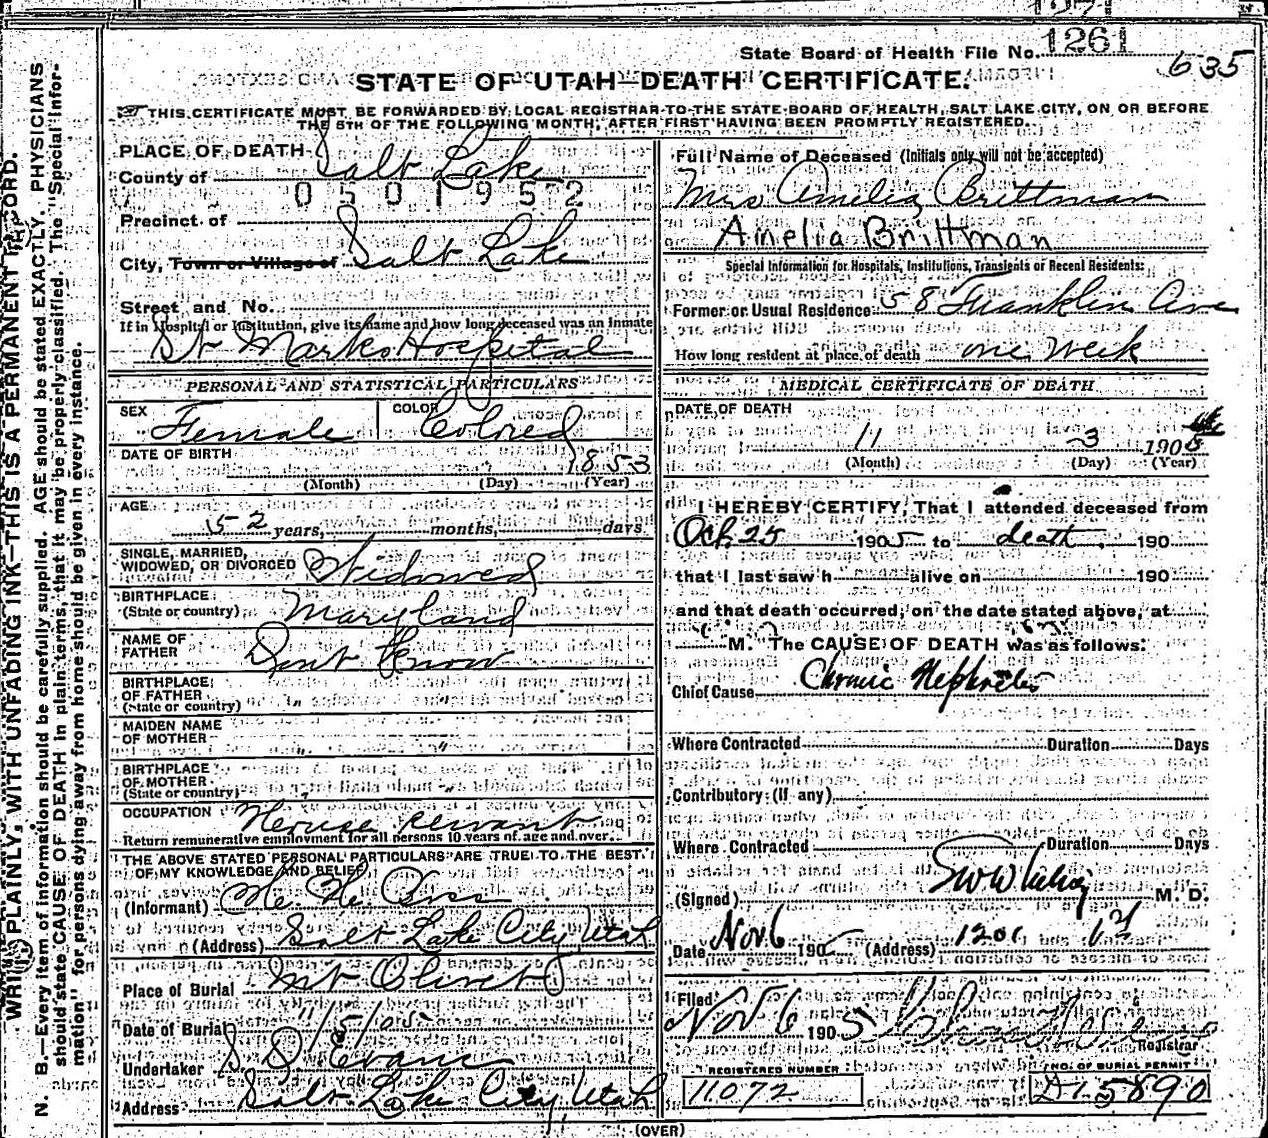 State Board of Health File No. 1261
635
STATE OF UTAH—DEATH CERTIFICATE.
THIS CERTIFICATE MUST BE FORWARDED BY LOCAL REGISTRAR TO THE STATE BOARD OF HEALTH, SALT LAKE CITY, ON OR BEFORE
THE 5TH OF THE FOLLOWING MONTH, AFTER FIRST HAVING BEEN PROMPTLY REGISTERED.
PLACE OF DEATH
County of Salt Lake
0501952
Precinct of
City, Town or Village of Salt Lake
Street and No.
If in Hospital or Institution, give its name and how long deceased was an inmate
St Marks Hospital
PERSONAL AND STATISTICAL PARTICULARS
SEX Female COLOR Colored
DATE OF BIRTH 1853
(Month) (Day) (Year)
AGE
52 years, months, days
SINGLE, MARRIED,
WIDOWED, OR DIVORCED Widowed
BIRTHPLACE
(State or country) Maryland
NAME OF
FATHER Dont Know
BIRTHPLACE
OF FATHER
(State or country)
MAIDEN NAME
OF MOTHER
BIRTHPLACE
OF MOTHER
(State or country)
OCCUPATION House servant
Return remunerative employment for all persons 10 years of age and over.
THE ABOVE STATED PERSONAL PARTICULARS ARE TRUE TO THE BEST
OF MY KNOWLEDGE AND BELIEF
(Informant)
(Address) Salt Lake City Utah
Place of Burial Mt Olivet
Date of Burial 11/5/05
Undertaker S. D. Evans
Address Salt Lake City Utah
Full Name of Deceased (Initials only will not be accepted)
Mrs Amelia Brittman
Amelia Brittman
Special Information for Hospitals, Institutions, Transients or Recent Residents:
Former or Usual Residence 58 Franklin Ave
How long resident at place of death one Week
MEDICAL CERTIFICATE OF DEATH
DATE OF DEATH
11 3 1905
(Month) (Day) (Year)
I HEREBY CERTIFY, That I attended deceased from
Oct 25 1905 to death 190
that I last saw h alive on 190
and that death occurred, on the date stated above, at
M. The CAUSE OF DEATH was as follows:
Chief Cause Chronic Nephritis
Where Contracted Duration Days
Contributory (If any)
Where Contracted Duration Days
(Signed) M. D.
Date Nov 6 1905 (Address)
Filed Nov 6 1905
Registrar
REGISTERED NUMBER
11072
NO. OF BURIAL PERMIT
D15890
(OVER)
N. B.—Every item of information should be carefully supplied. AGE should be stated EXACTLY. PHYSICIANS
should state CAUSE OF DEATH in plain terms, that it may be properly classified. The "Special Infor-
mation" for persons dying away from home should be given in every instance.
WRITE PLAINLY, WITH UNFADING INK—THIS IS A PERMANENT RECORD.